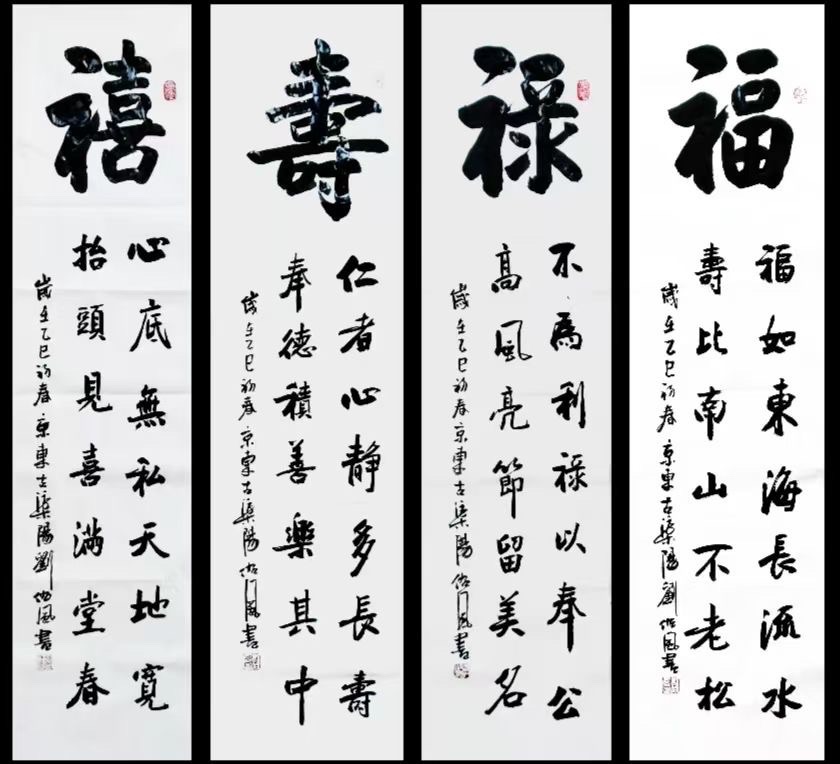 福
福如東海長流水
壽比南山不老松
歲在乙巳初春京東古渠陽劉佑風書
祿
不為利祿以奉公
高風亮節留美名
歲在乙巳初春京東古渠陽佑風書
壽
仁者心靜多長壽
奉德積善樂其中
歲在乙巳初春京東古渠陽佑風書
禧
心底無私天地寬
抬頭見喜滿堂春
歲在乙巳初春京東古渠陽劉佑風書